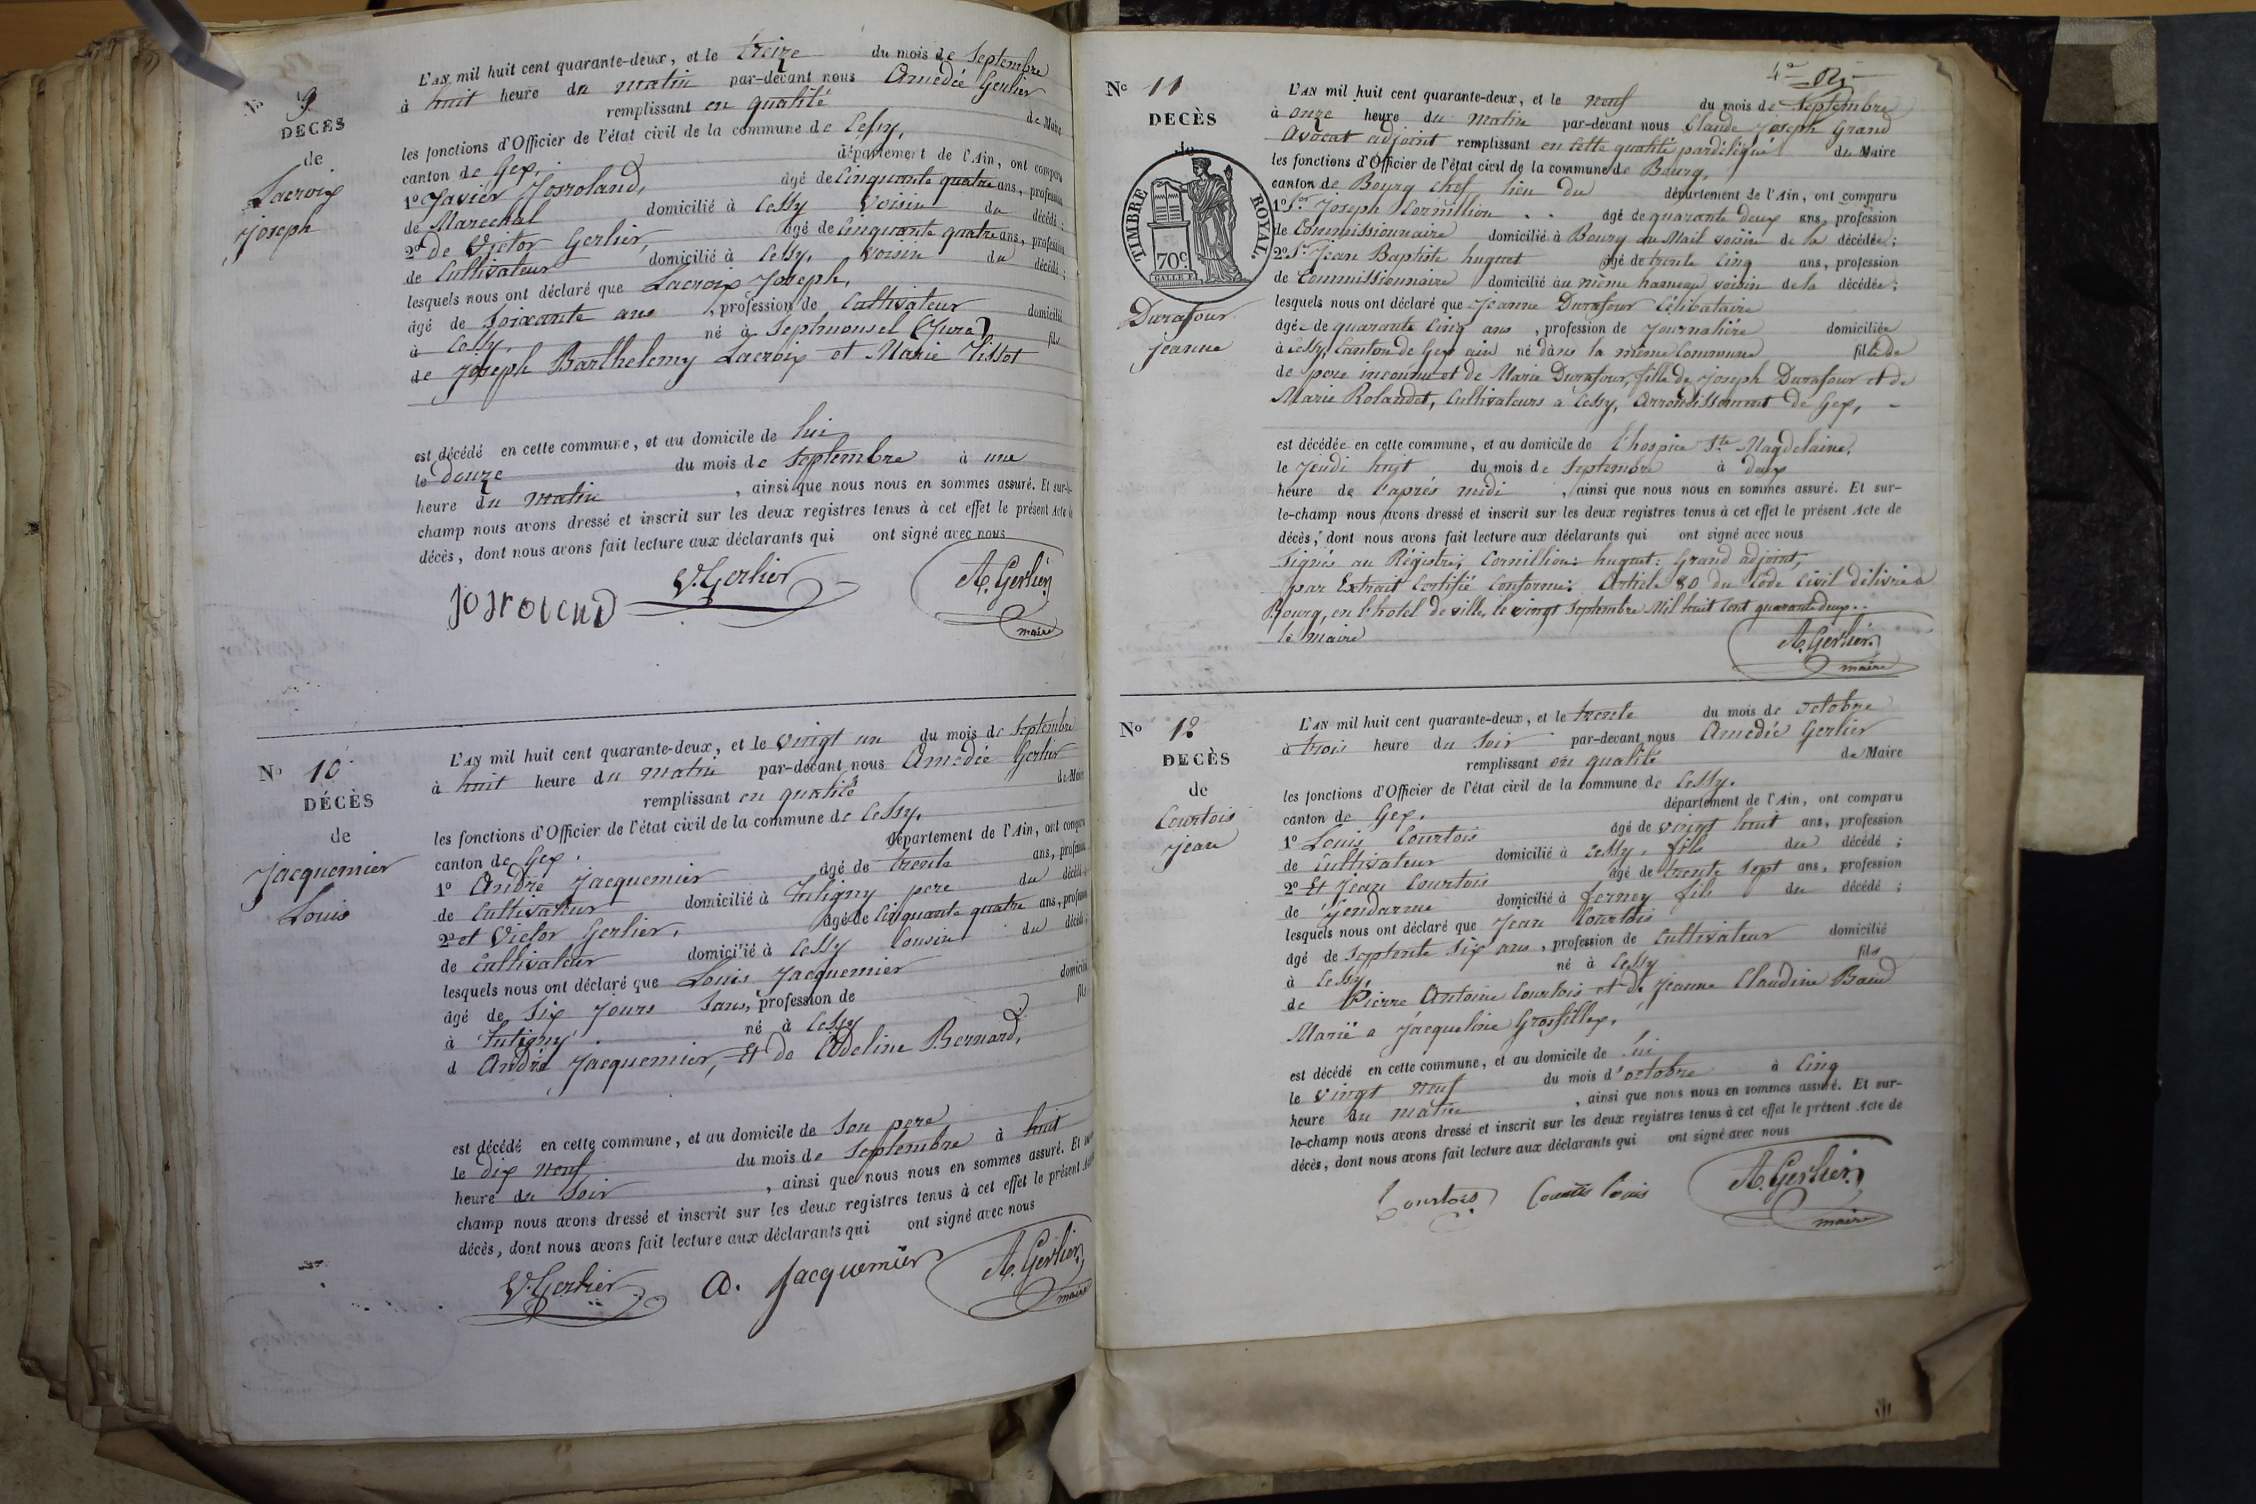 N° 9
DECÈS
de
Lacroix
Joseph
L'AN mil huit cent quarante-deux, et le treize du mois de Septembre
à huit heure du matin par-devant nous Amedée Gerlier
remplissant en qualité de Maire
les fonctions d'Officier de l'état civil de la commune de Cessy,
canton de Gex, département de l'Ain, ont comparu
1° Xavier Josroland, âgé de Cinquante quatre ans, profession
de Marechal domicilié à Cessy voisin du décédé ;
2° de Victor Gerlier, âgé de Cinquante quatre ans, profession
de Cultivateur domicilié à Cessy, voisin du décédé ;
lesquels nous ont déclaré que Lacroix Joseph,
âgé de Soixante ans , profession de Cultivateur domicilié
à Cessy, né à Septmonsel (Jura), fils
de Joseph Barthelemy Lacroix et Marie Vissot
est décédé en cette commune, et au domicile de lui
le douze du mois de Septembre à une
heure du matin , ainsi que nous nous en sommes assuré. Et sur-le-
champ nous avons dressé et inscrit sur les deux registres tenus à cet effet le présent Acte de
décès, dont nous avons fait lecture aux déclarants qui ont signé avec nous
V. Gerlier A. Gerlier
maire
N° 10
DÉCÈS
de
Jacquemier
Louis
L'AN mil huit cent quarante-deux, et le vingt un du mois de Septembre
à huit heure du matin par-devant nous Amedée Gerlier
remplissant en qualité de Maire
les fonctions d'Officier de l'état civil de la commune de Cessy,
canton de Gex. département de l'Ain, ont comparu
1° André Jacquemier âgé de trente ans, profession
de Cultivateur domicilié à Tutigny pere du décédé ;
2° et Victor Gerlier, âgé de Cinquante quatre ans, profession
de Cultivateur domicilié à Cessy Cousin du décédé ;
lesquels nous ont déclaré que Louis Jacquemier
âgé de Six jours Sans, profession de domicilié
à Tutigny. né à Cessy fils
d André Jacquemier, Et de Adeline Bernard,
est décédé en cette commune, et au domicile de Son pere
le dix neuf du mois de Septembre à huit
heure du Soir , ainsi que nous nous en sommes assuré. Et sur-le-
champ nous avons dressé et inscrit sur les deux registres tenus à cet effet le présent Acte
décès, dont nous avons fait lecture aux déclarants qui ont signé avec nous
V. Gerlier a. Jacquemier A. Gerlier
maire
N° 11
DECÈS
de
TIMBRE ROYAL
70c
Durafour
Jeanne
L'AN mil huit cent quarante-deux, et le neuf du mois de Septembre
à onze heure du matin par-devant nous Claude Joseph Grand
Avocat adjoint remplissant en cette qualité par délégué du Maire
les fonctions d'Officier de l'état civil de la commune de Bourg,
canton de Bourg chef lieu du département de l'Ain, ont comparu
1° Sr Joseph Cornillion âgé de quarante deux ans, profession
de Commissionnaire domicilié à Bourg au Mail voisin de la décédée ;
2° Sr Jean Baptiste huguet âgé de trente cinq ans, profession
de Commissionnaire domicilié au même hameau voisin de la décédée ;
lesquels nous ont déclaré que Jeanne Durafour Célibataire
âgée de quarante cinq ans , profession de Journalière domiciliée
à Cessy, Canton de Gex ain né dans la même Commune fille de
de pere inconnu et de Marie Durafour, fille de Joseph Durafour et de
Marie Rolandet, Cultivateurs a Cessy, Arrondissement de Gex, -
est décédée en cette commune, et au domicile de L'hospice Ste Magdelaine,
le Jeudi huit du mois de Septembre à deux
heure de l'après midi , ainsi que nous nous en sommes assuré. Et sur-
le-champ nous avons dressé et inscrit sur les deux registres tenus à cet effet le présent Acte de
décès, dont nous avons fait lecture aux déclarants qui ont signé avec nous
Signés au Régistre; Cornillion: huguet: Grand adjoint,
par Extrait Certifié Conforme: Article 80 du Code Civil délivré à
Bourg, en l'hotel de ville, le vingt Septembre Mil huit Cent quarante deux..
le Maire
A. Gerlier.
maire
N° 12
DÉCÈS
de
Courtois
Jean
L'AN mil huit cent quarante-deux, et le trente du mois de octobre
à trois heure du Soir par-devant nous Amedée Gerlier
remplissant en qualité de Maire
les fonctions d'Officier de l'état civil de la commune de Cessy.
canton de Gex. département de l'Ain, ont comparu
1° Louis Courtois âgé de vingt huit ans, profession
de Cultivateur domicilié à Cessy, fils du décédé ;
2° Et Jean Courtois âgé de trente Sept ans, profession
de Gendarme domicilié à ferney fils du décédé ;
lesquels nous ont déclaré que Jean Courtois
âgé de Septente Six ans, profession de Cultivateur domicilié
à Cessy, né à Cessy fils
de Pierre Antoine Courtois et de Jeanne Claudine Baud
Marié a Jacqueline Grosfillex,
est décédé en cette commune, et au domicile de lui
le vingt neuf du mois d'octobre à Cinq
heure du matin , ainsi que nous nous en sommes assuré. Et sur-
le-champ nous avons dressé et inscrit sur les deux registres tenus à cet effet le présent Acte de
décès, dont nous avons fait lecture aux déclarants qui ont signé avec nous
Courtois Courtois Louis A. Gerlier
maire